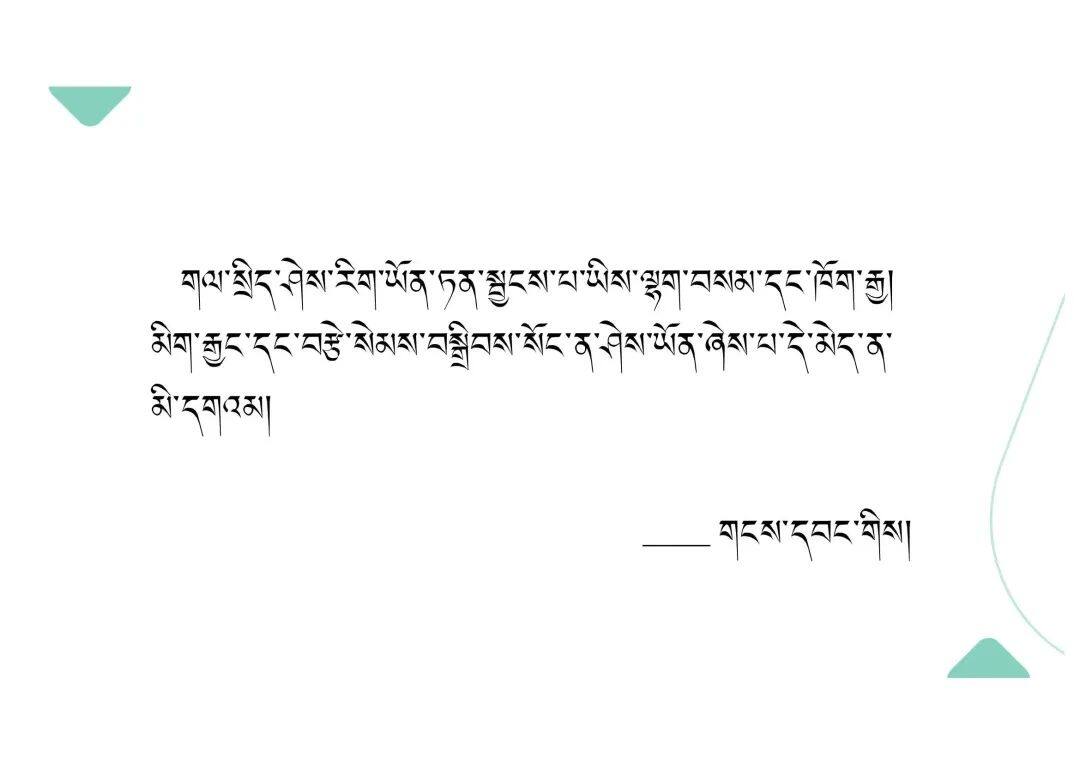 གལ་སྲིད་ཤེས་རིག་ཡོན་ཏན་སྦྱངས་པ་ཡིས་ལྷག་བསམ་དང་ཁོག་རྒྱ།
མིག་རྒྱང་དང་བརྩེ་སེམས་བསྒྲིབས་སོང་ན་ཤེས་ཡོན་ཞེས་པ་དེ་མེད་ན་
མི་དགའམ།
____ གངས་དབང་གིས།